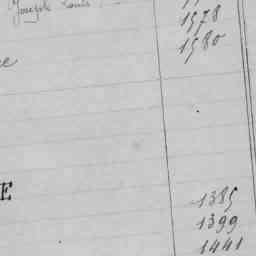 Joseph Louis
1578
1580
E
1385
1399
1441